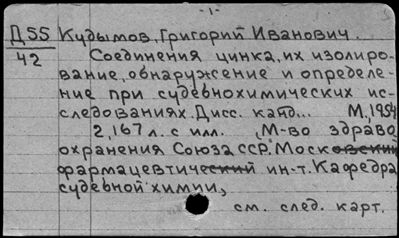 -1-
Д55 Кудымов, Григорий Иванович.
42 Соединения цинка, их изолиро-
вание, обнаружение и определе-
ние при судебнохимических ис-
следованиях. Дисс. канд... М, 1954
2, 167 л. с илл. (М-во здраво
охранения Союза ССР. Московский
фармацевтический ин-т. Кафедра
судебной химии,
см. след. карт.